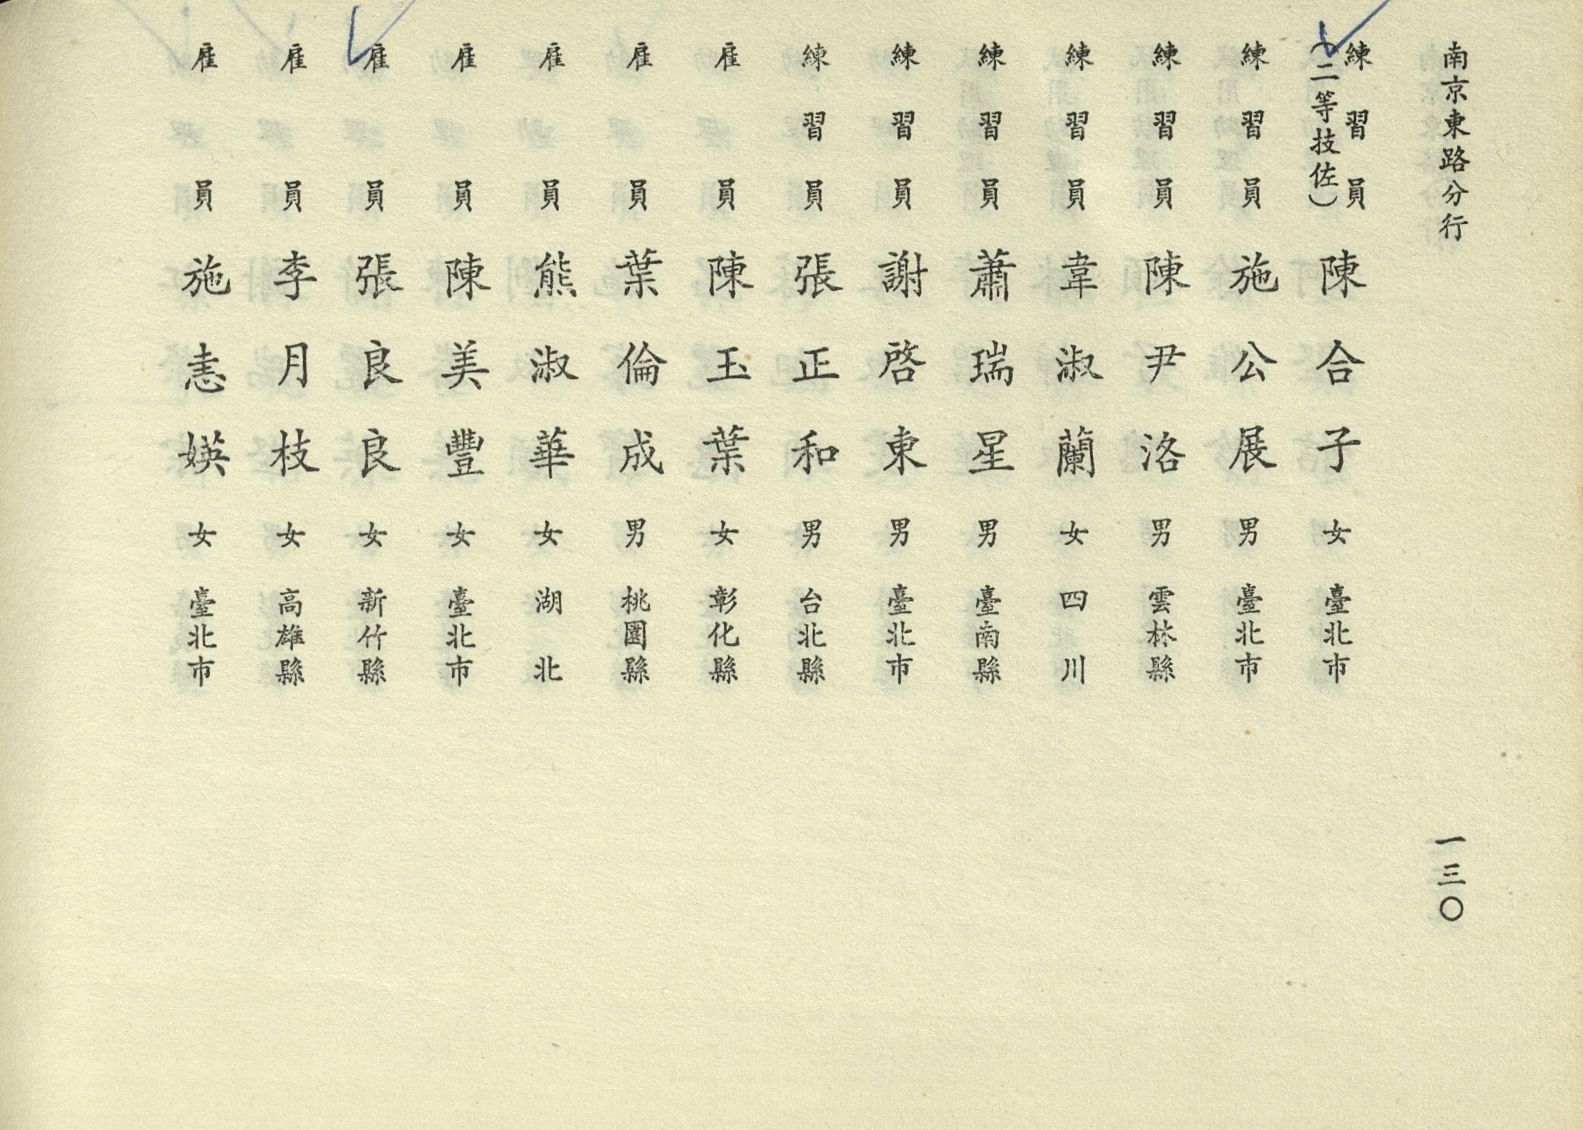 南京東路分行
一三〇
練習員(二等技佐) 陳合子 女 臺北市
練習員 施公展 男 臺北市
練習員 陳尹洛 男 雲林縣
練習員 韋淑蘭 女 四川
練習員 蕭瑞星 男 臺南縣
練習員 謝啓東 男 臺北市
練習員 張正和 男 台北縣
雇員 陳玉葉 女 彰化縣
雇員 葉倫成 男 桃園縣
雇員 熊淑華 女 湖北
雇員 陳美豐 女 臺北市
雇員 張良良 女 新竹縣
雇員 李月枝 女 高雄縣
雇員 施恚媖 女 臺北市